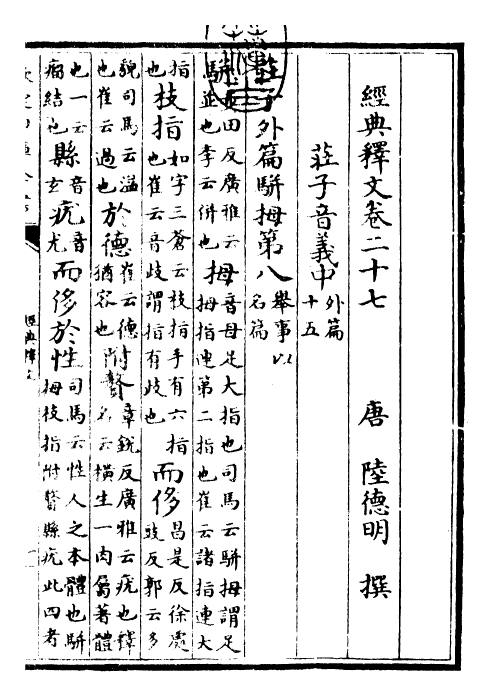 經典釋文卷二十七 唐 陸德明 撰
莊子音義中 外篇十五
莊子外篇駢拇第八 舉事以名篇
駢步田反廣雅云並也李云併也 拇音母足大指也司馬云駢拇謂足拇指連第二指也崔云諸指連大
指也 枝指如字三蒼云枝指手有六指也崔云音歧謂指有歧也 而侈昌是反徐處豉反郭云多
貌司馬云溢也崔云過也 於德崔云德猶容也 附贅章銳反廣雅云疣也釋名云橫生一肉屬著體
也一云瘤結也 縣音玄 疣音尤 而侈於性司馬云性人之本體也駢拇枝指附贅縣疣此四者
經典釋文